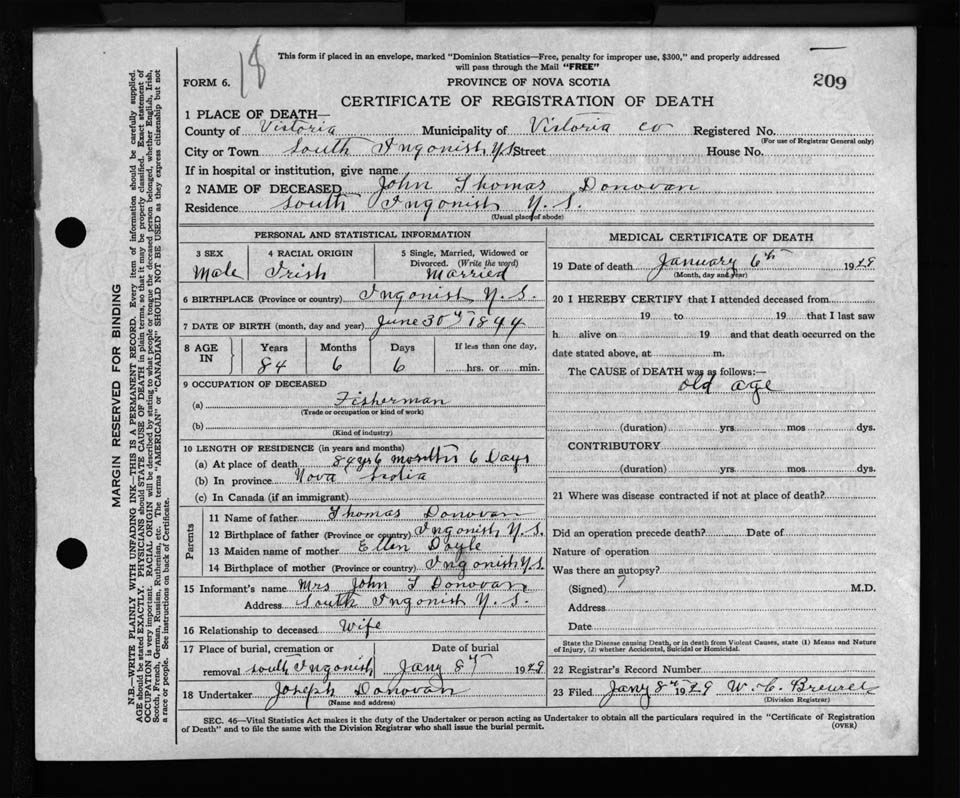 18
This form if placed in an envelope, marked "Dominion Statistics—Free, penalty for improper use, $300," and properly addressed
will pass through the Mail "FREE"
209
FORM 6.
PROVINCE OF NOVA SCOTIA
CERTIFICATE OF REGISTRATION OF DEATH
1 PLACE OF DEATH—
County of Victoria Municipality of Victoria co Registered No.
(For use of Registrar General only)
City or Town South Ingonish N.S. Street House No.
If in hospital or institution, give name
2 NAME OF DECEASED John Thomas Donovan
Residence South Ingonish N.S.
(Usual place of abode)
PERSONAL AND STATISTICAL INFORMATION
3 SEX 4 RACIAL ORIGIN 5 Single, Married, Widowed or
Divorced. (Write the word)
Male Irish Married
6 BIRTHPLACE (Province or country) Ingonish N.S.
7 DATE OF BIRTH (month, day and year) June 30th 1844
8 AGE IN Years Months Days If less than one day,
84 6 6 hrs. or min.
9 OCCUPATION OF DECEASED
(a) Fisherman
(Trade or occupation or kind of work)
(b)
(Kind of industry)
10 LENGTH OF RESIDENCE (in years and months)
(a) At place of death 84 yrs 6 months 6 Days
(b) In province Nova Scotia
(c) In Canada (if an immigrant)
Parents
11 Name of father Thomas Donovan
12 Birthplace of father (Province or country) Ingonish N.S.
13 Maiden name of mother Ellen Doyle
14 Birthplace of mother (Province or country) Ingonish N.S.
15 Informant's name Mrs John T Donovan
Address South Ingonish N.S.
16 Relationship to deceased Wife
17 Place of burial, cremation or Date of burial
removal South Ingonish Jany 8th 1929
18 Undertaker Joseph Donovan
(Name and address)
MEDICAL CERTIFICATE OF DEATH
19 Date of death January 6th 1929
(Month, day and year)
20 I HEREBY CERTIFY that I attended deceased from
19 to 19 that I last saw
h alive on 19 and that death occurred on the
date stated above, at m.
The CAUSE of DEATH was as follows:—
old age
(duration) yrs. mos. dys.
CONTRIBUTORY
(duration) yrs. mos. dys.
21 Where was disease contracted if not at place of death?
Did an operation precede death? Date of
Nature of operation
Was there an autopsy?
(Signed) ? M.D.
Address
Date
State the Disease causing Death, or in death from Violent Causes, state (1) Means and Nature
of Injury, (2) whether Accidental, Suicidal or Homicidal.
22 Registrar's Record Number
23 Filed Jany 8th 1929 W. C.
(Division Registrar)
SEC. 46—Vital Statistics Act makes it the duty of the Undertaker or person acting as Undertaker to obtain all the particulars required in the "Certificate of Registration
of Death" and to file the same with the Division Registrar who shall issue the burial permit.
(OVER)
MARGIN RESERVED FOR BINDING
N.B.—WRITE PLAINLY WITH UNFADING INK—THIS IS A PERMANENT RECORD. Every item of information should be carefully supplied.
AGE should be stated EXACTLY. PHYSICIANS should STATE CAUSE OF DEATH in plain terms, so that it may be properly classified. Exact statement of
OCCUPATION is very important. RACIAL ORIGIN will be described by stating to what people or tongue the deceased person belonged, whether English, Irish,
Scotch, French, German, Russian, Ruthenian, etc. The terms "AMERICAN" or "CANADIAN" SHOULD NOT BE USED as they express citizenship but not
a race or people. See instructions on back of Certificate.